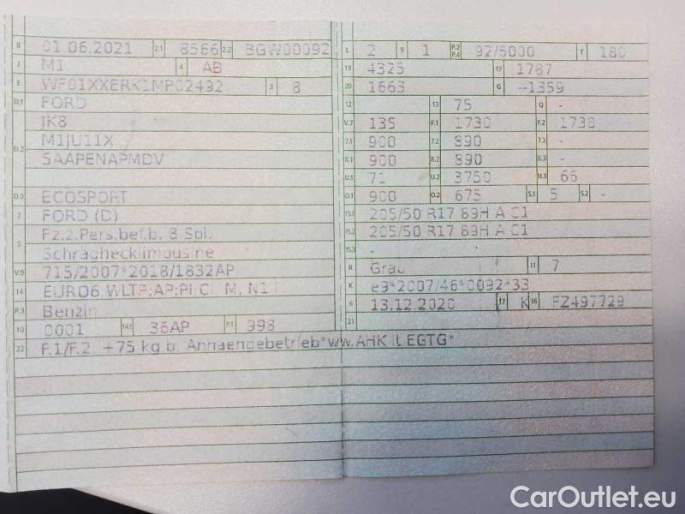 B 01.06.2021 2.1 8566 2.2 BGW00092
J M1 4 AB
E WF01XXERK1MP02492 3 8
D.1 FORD
JK8
D.2 M1JU11X
5AAPENAPMDV
D.3 ECOSPORT
2 FORD (D)
5 Fz.z.Pers.bef.b. 8 Spl.
Schrägheck­limousine
V.9 715/2007*2018/1832AP
14 EURO6
P.3 Benzin
10 0001 14.1 36AP P.1 998
22 F.1/F.2: +75 kg b. Anhaengebetrieb*ww.AHK lt.EGTG*
L 2 9 1 P.2 P.4 92/5000 T 180
18 4325 19 1787
20 1663 G --1359
12 - 13 75 Q -
V.7 135 F.1 1730 F.2 1730
7.1 900 7.2 890 7.3 -
8.1 900 8.2 890 8.3 -
U.1 71 U.2 3750 U.3 66
O.1 900 O.2 675 S.1 5 S.2 -
15.1 205/50 R17 89H A C1
15.2 205/50 R17 89H A C1
15.3 -
R Grau 11 7
K e9*2007/46*0092*33
6 13.12.2020 17 K 16 FZ497729
21
CarOutlet.eu